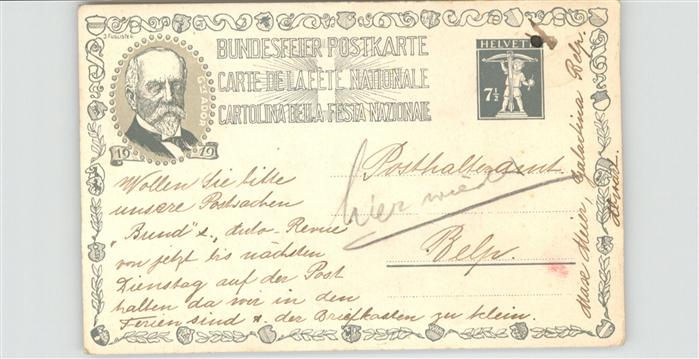 J. FUGLISTER
BUNDESFEIER POSTKARTE
CARTE DE LA FÊTE NATIONALE
CARTOLINA DELLA FESTA NAZIONALE
GVE ADOR
1919
HELVETIA
7½
Wollen Sie bitte
unsere Postsachen
"Bund" &. Auto-Revue
von jetzt bis nächsten
Dienstag auf der Post
halten da wir in den
Ferien sind &. der Briefkasten zu klein.
Posthalteramt
hier
Belp.
Meier, Galactina Belp.